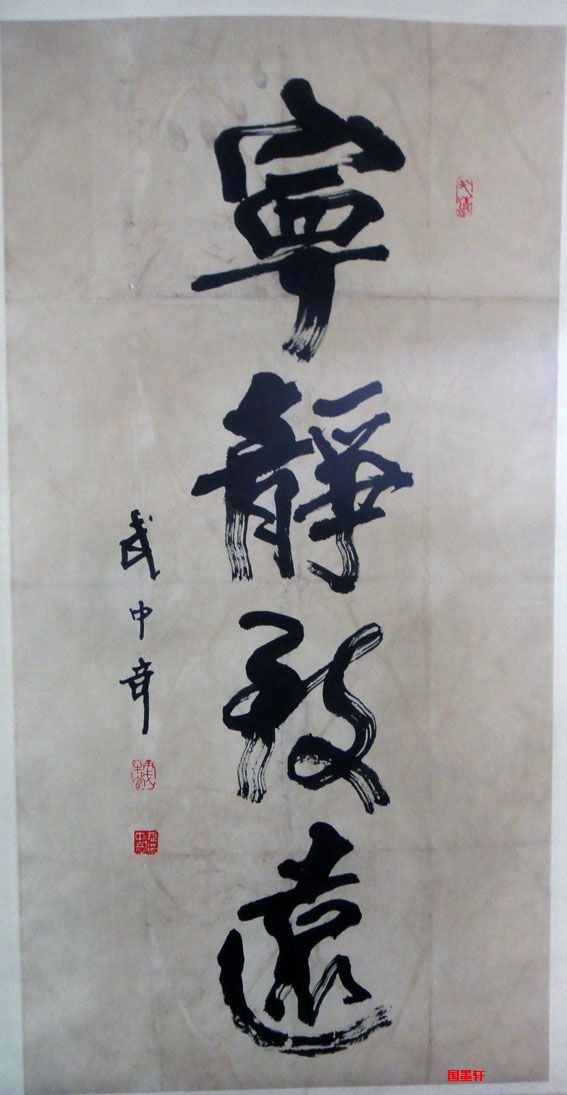 寧靜致遠
武中奇
国墨轩